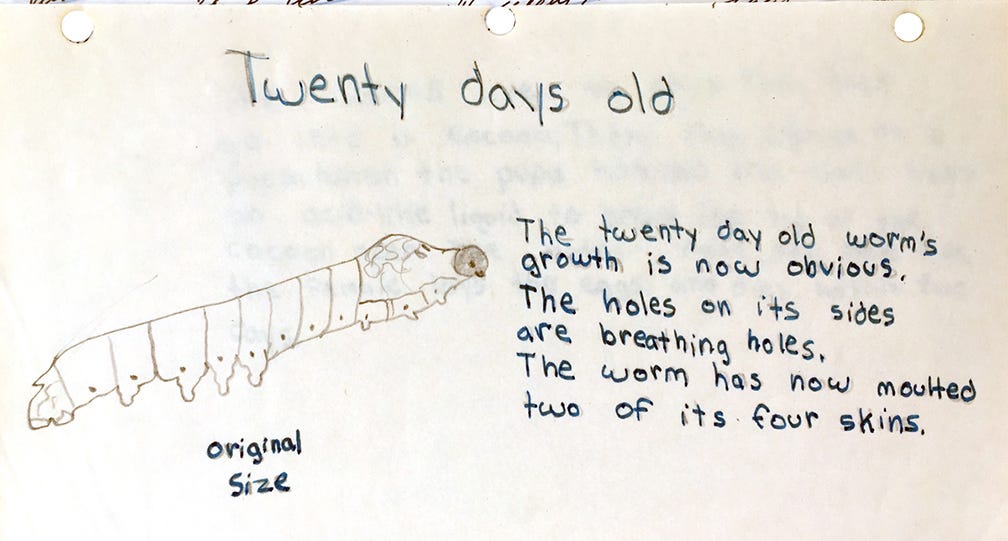 Twenty days old
The twenty day old worm's
growth is now obvious.
The holes on its sides
are breathing holes.
The worm has now moulted
two of its four skins.
original
size